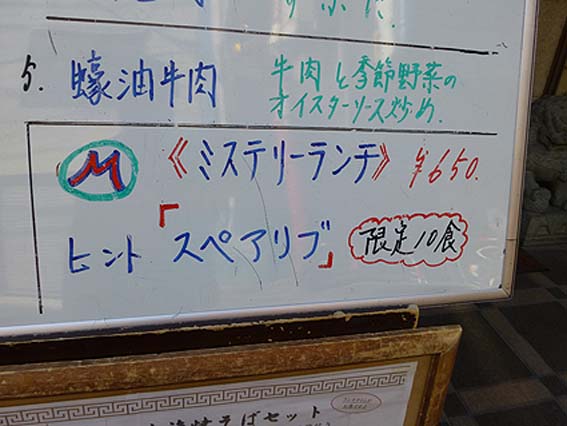 5. 蠔油牛肉 牛肉と季節野菜の
オイスターソース炒め.
M 《ミステリーランチ》 ¥650.
ヒント 「スペアリブ」 限定10食
焼そばセット